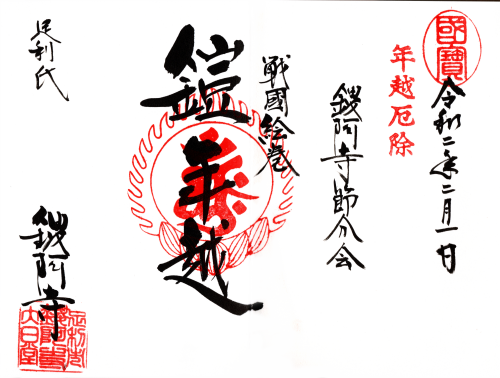 國寶
令和二年二月一日
年越厄除
鑁阿寺節分会
戦國絵巻
鎧年越
足利氏
鑁阿寺
大日堂